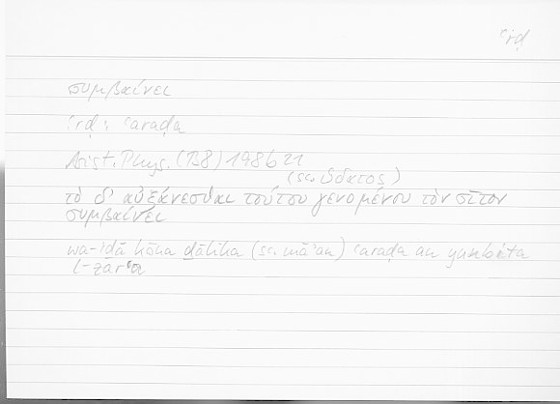 ʿrḍ
συμβαίνει
ʿrḍ : ʿaraḍa
Arist. Phys. (B8) 198b21
(sc. ὕδατος)
τὸ δ' αὐξάνεσθαι τούτου γενομένου τὸν σῖτον
συμβαίνει
wa-ʾiḏā kāna ḏālika (sc. māʾan) ʿaraḍa an yunbita
l-zarʿa